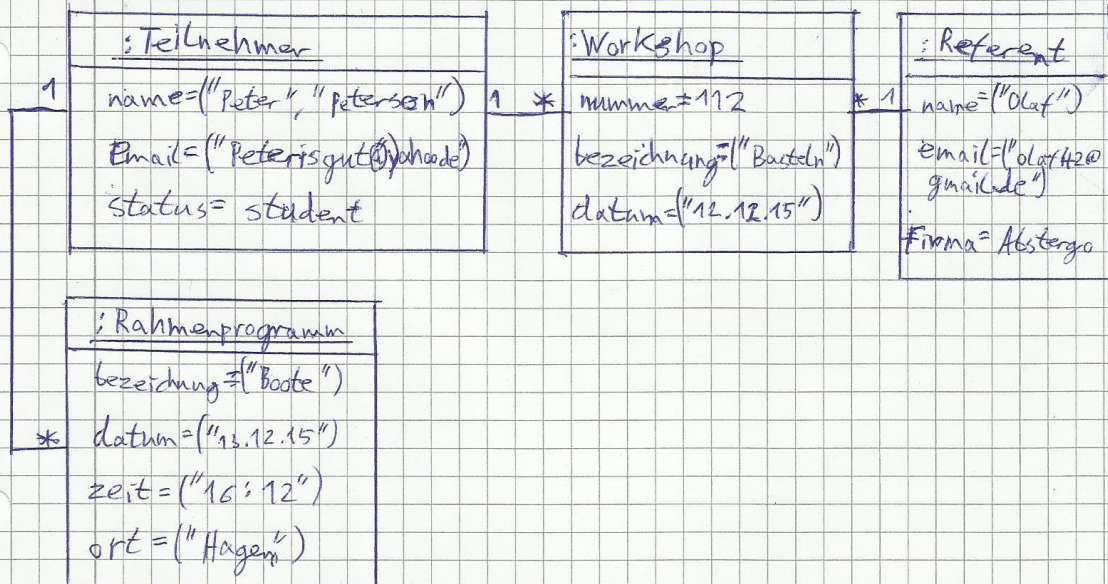 :Teilnehmer
name=("Peter", "Petersen")
Email=("Peterisgut@yahoo.de")
status= student
1
1
*
:Workshop
nummer=112
bezeichnung=("Basteln")
datum=("12.12.15")
*
1
:Referent
name=("Olaf")
email=("olaf42@
gmail.de")
Firma= Abstergo
*
:Rahmenprogramm
bezeichnung=("Boote")
datum=("13.12.15")
zeit=("16:12")
ort=("Hagen")